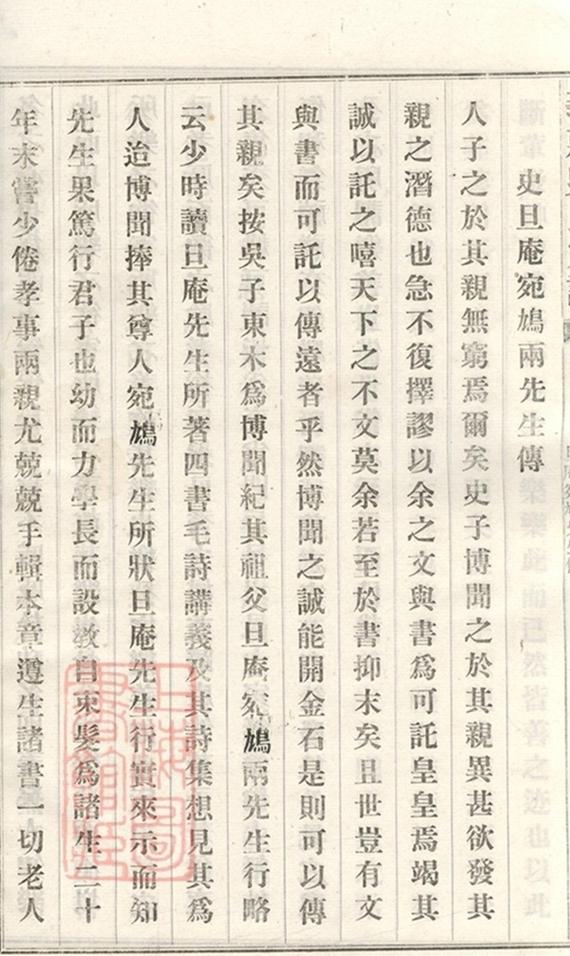 史旦庵宛鳩兩先生傳
人子之於其親無窮焉爾矣史子博聞之於其親異甚欲發其
親之潛德也急不復擇謬以余之文與書爲可託皇皇焉竭其
誠以託之嘻天下之不文莫余若至於書抑末矣且世豈有文
與書而可託以傳遠者乎然博聞之誠能開金石是則可以傳
其親矣按吳子東木爲博聞紀其祖父旦庵宛鳩兩先生行略
云少時讀旦庵先生所著四書毛詩講義及其詩集想見其爲
人迨博聞捧其尊人宛鳩先生所狀旦庵先生行實來示而知
先生果篤行君子也幼而力學長而設教自束髮爲諸生二十
年未嘗少倦孝事兩親尤兢兢手輯本章遵生諸書一切老人